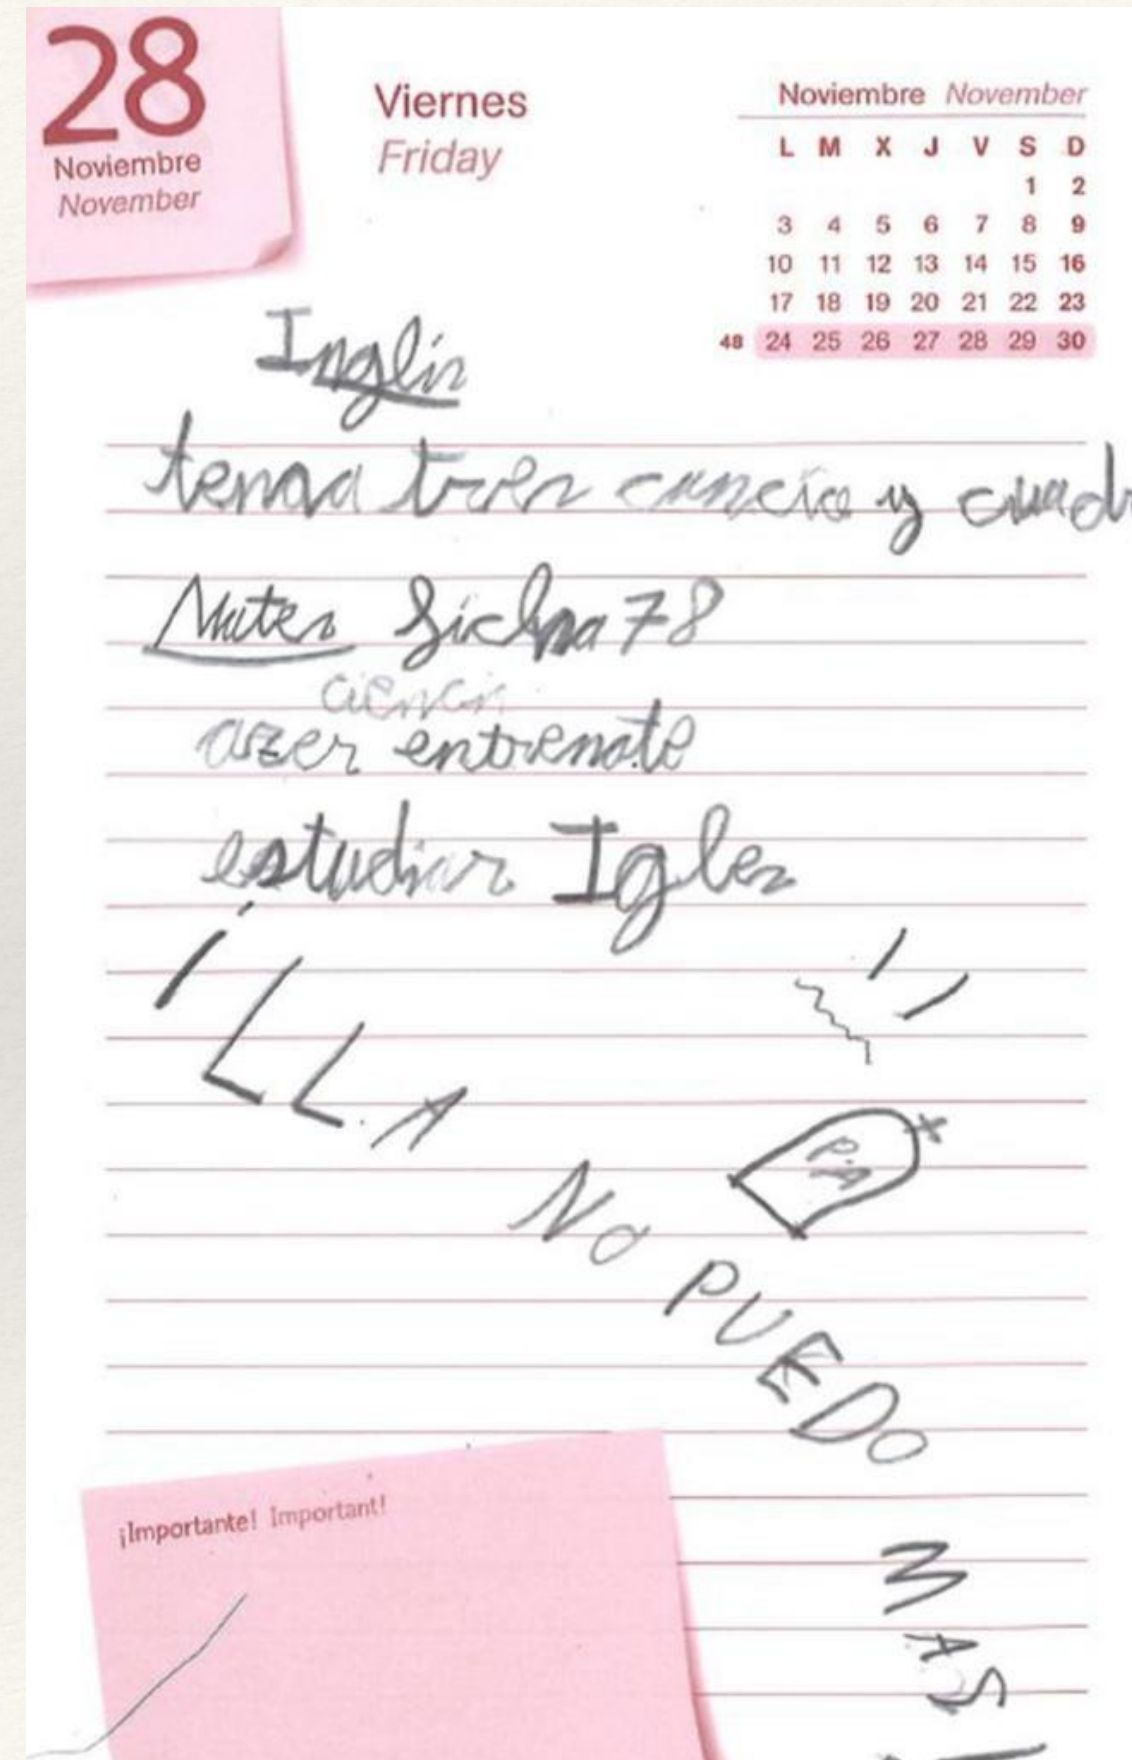 28
Noviembre
November
Viernes
Friday
Noviembre November
L M X J V S D
1 2
3 4 5 6 7 8 9
10 11 12 13 14 15 16
17 18 19 20 21 22 23
48 24 25 26 27 28 29 30
Inglis
tres y cuad
Mates ficha 78
ciencia
azer entrenate
estudiar Igles
¡LLA
NO PUEDO
MAS
¡Importante! Important!